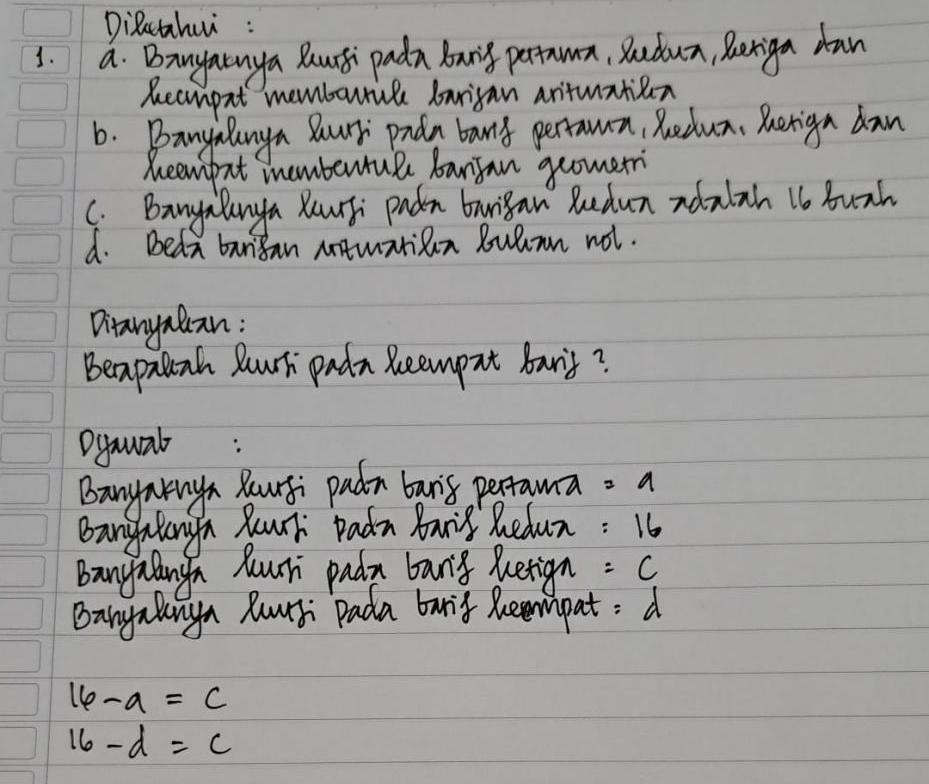 Diketahui :
1. a. Banyaknya kursi pada baris pertama, kedua, ketiga dan
keempat membentuk barisan aritmatika
b. Banyaknya kursi pada baris pertama, kedua, ketiga dan
keempat membentuk barisan geometri
c. Banyaknya kursi pada barisan kedua adalah 16 buah
d. Beda barisan aritmatika bukan nol.
Ditanyakan :
Berapakah kursi pada keempat baris ?
Dijawab :
Banyaknya kursi pada baris pertama = a
Banyaknya kursi pada baris kedua = 16
Banyaknya kursi pada baris ketiga = c
Banyaknya kursi pada baris keempat = d
16 - a = c
16 - d = c